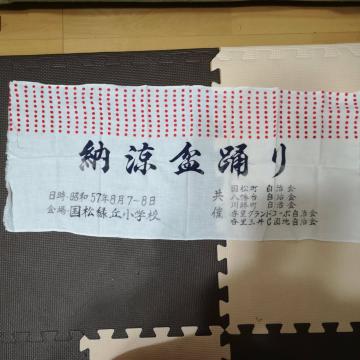 納涼盆踊り
日時・昭和57年8月7~8日
会場・国松緑丘小学校
共催
国松町 自治会
八幡台 自治会
川勝町 自治会
香里グランドコーポ自治会
香里三井C団地自治会